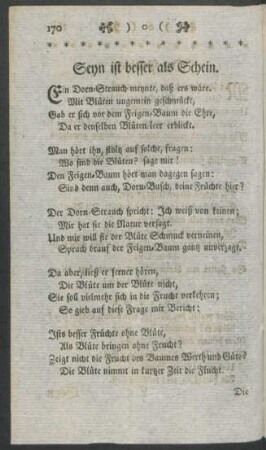 170 ) o (
Seyn ist besser als Schein.
Ein Dorn-Strauch meynte, daß ers wäre.
Mit Blüten ungemein geschmückt,
Gab er sich vor dem Feigen-Baum die Ehre,
Da er denselben Blüten-leer erblickt.
Man hört ihn, stoltz auf solche, fragen:
Wo sind die Blüten? sage mir!
Den Feigen-Baum hört man dagegen sagen:
Sind denn auch, Dorn-Busch, deine Früchte hier?
Der Dorn-Strauch spricht: Ich weiß von keinen;
Mir hat sie die Natur versagt.
Und mir will sie der Blüte Schmuck verneinen,
Sprach drauf der Feigen-Baum gantz unverzagt.
Da aber, ließ er ferner hören,
Die Blüte um der Blüte nicht,
Sie soll vielmehr sich in die Frucht verkehren;
So gieb auf diese Frage mir Bericht:
Ists besser Früchte ohne Blüte,
Als Blüte bringen ohne Frucht?
Zeigt nicht die Frucht des Baumes Werth und Güte?
Die Blüte nimmt in kurtzer Zeit die Flucht.
Die